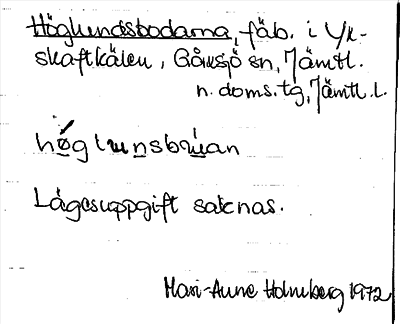 Höglundsbodarna, fäb. i Yx-
skaftkälen, Gåxsjö sn, Jämtl.
n. doms. tg, Jämtl. l.
höglunsbuan
Lägesuppgift saknas.
Mari-Anne Holmberg 1972